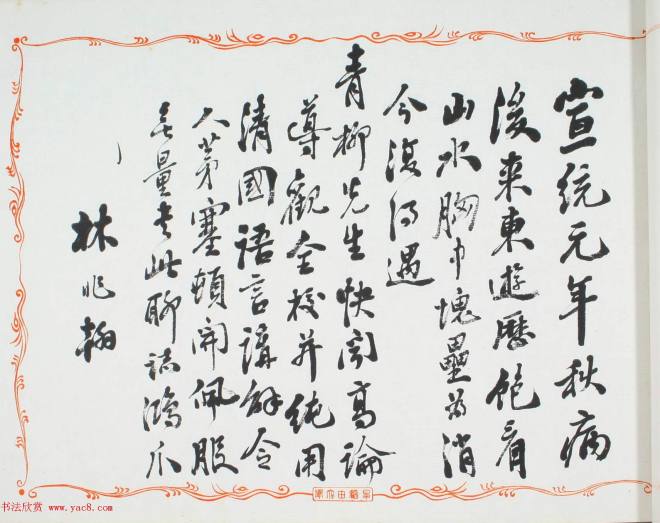 宣統元年秋病
後来東遊歷飽看
山水胸中塊壘為消
今復得遇
青柳先生快聞高論
導觀全校並純用
清國語言講解令
人茅塞頓開佩服
無量書此聊誌鴻爪
林兆翰
书法欣赏 www.yac8.com